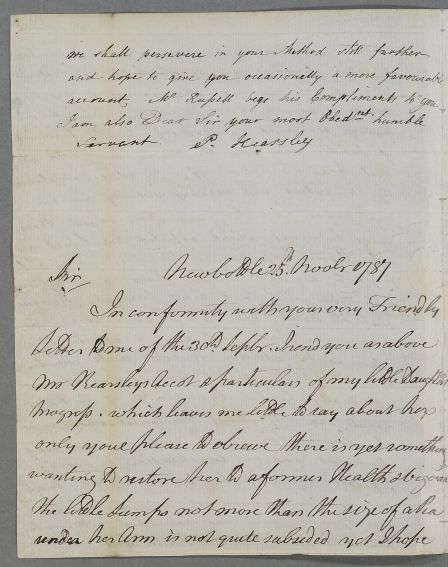 we shall persevere in your Method still further
and hope to give you occasionally a more favourable
account, Mr Russell begs his Compliments to you
I am also Dear Sir your most Obednt humble
Servant P. Hearsley
Newbottle 25th Novbr 1787
Sir
In conformity with your very Friendly
Letter to me of the 30th Septbr. I send you as above
Mr Kearsleys Acct & particulars of my little Daughters
Progress. which leaves me little to say about her
only youl please to observe there is yet something
wanting to restore her to a former Health & vigour
The little Lumps not more than the size of a Pea
under her Arm is not quite subsided yet I hope